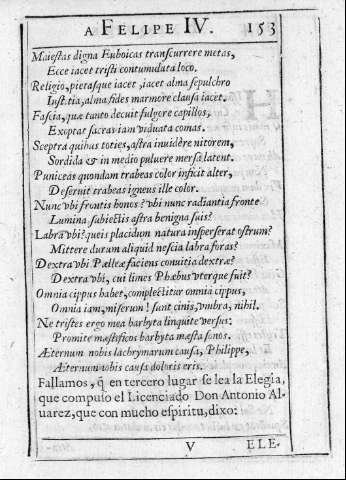 A FELIPE IV. 153
Maiestas digna Euboicas transcurrere metas,
Ecce iacet tristi contumulata loco.
Religio, pietasque iacet, iacet alma sepulchro
Iustitia, alma fides marmore clausa iacet.
Fascia, quæ tanto decuit fulgore capillos,
Exoptat sacras iam viduata comas.
Sceptra quibus toties, astra inuidère nitorem,
Sordida & in medio puluere mersa latent.
Puniceas quondam trabeas color inficit alter,
Deseruit trabeas igneus ille color.
Nunc vbi frontis honos? vbi nunc radiantia fronte
Lumina subiectis astra benigna suis?
Labra vbi? queis placidum natura insperserat ostrum?
Mittere durum aliquid nescia labra foras?
Dextra vbi Pælleæ faciens conuitia dextræ?
Dextra vbi, cui limes Phæbus vterque fuit?
Omnia cippus habet, complectitur omnia cippus,
Omnia iam, miserum! sunt cinis, vmbra, nihil.
Ne tristes ergo mea barbyta linquite versus:
Promite mæstificos barbyta mæsta sonos.
Æternum nobis lachrymarum causa, Philippe,
Æternum nobis causa doloris eris.
Fallamos, q̃ en tercero lugar se lea la Elegia,
que compuso el Licenciado Don Antonio Al-
uarez, que con mucho espiritu, dixo:
V ELE-